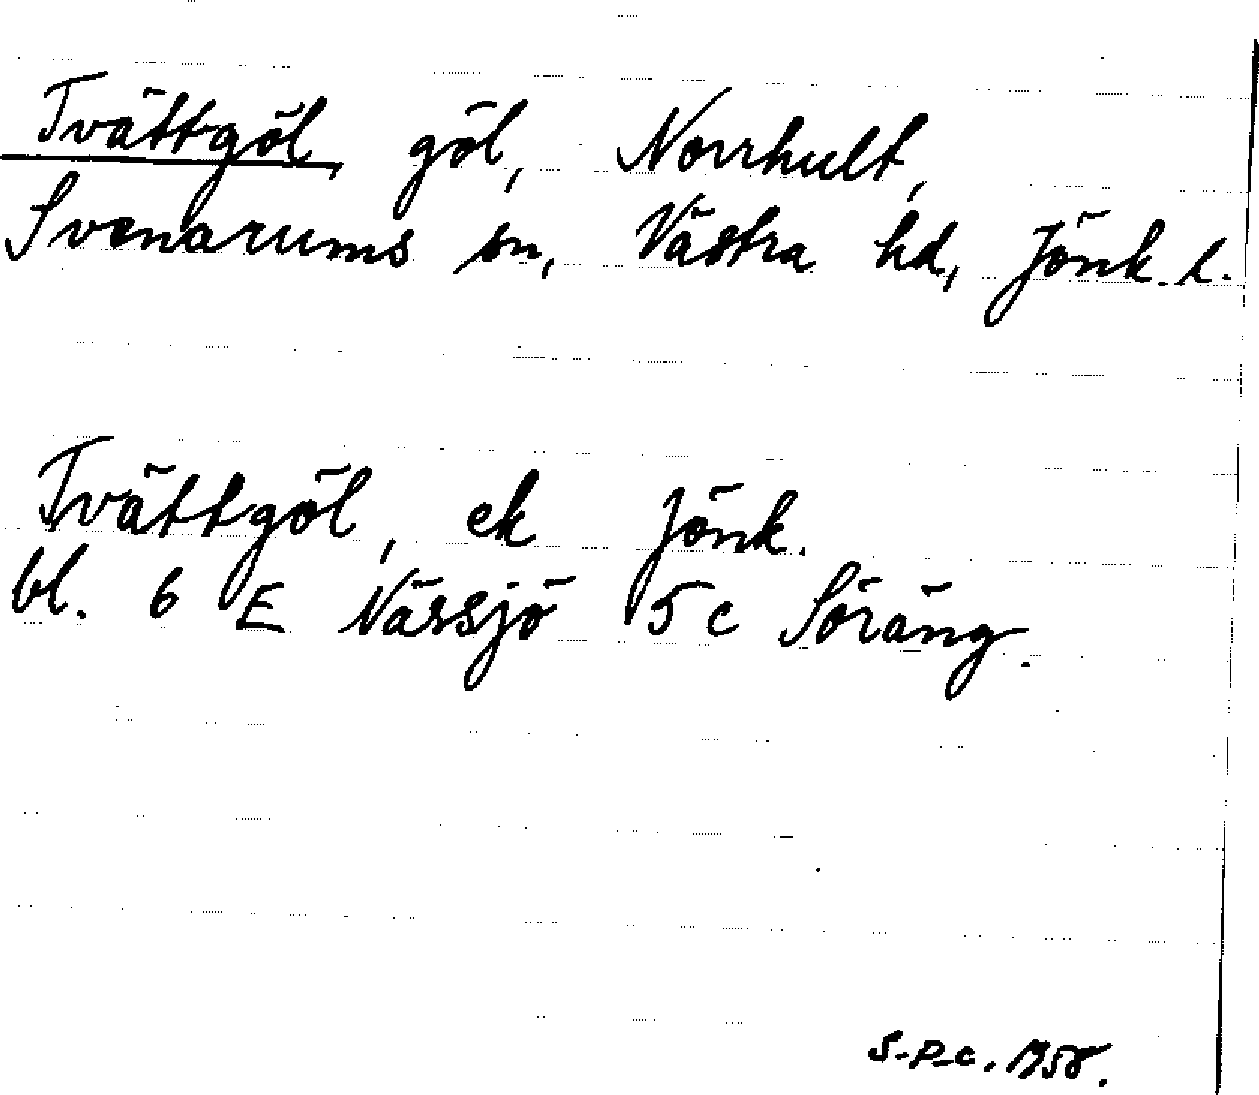 Tvättgöl, göl, Norrhult,
Svenarums sn, Västra hd, Jönk. l.
Tvättgöl, ek Jönk.
bl. 6 E Nässjö 5 c Söräng.
S-P-c. 1958.